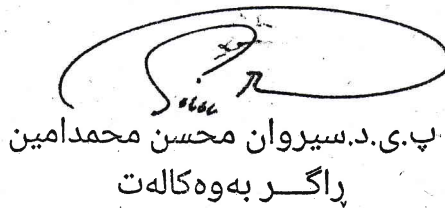 پ.ی.د.سیروان محسن محمدامین
ڕاگــــر بەوەکالەت